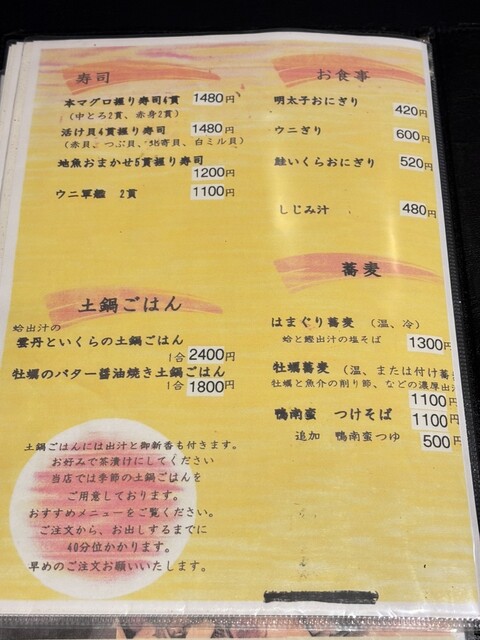 寿司
本マグロ握り寿司4貫 1480円
(中とろ2貫、赤身2貫)
活け貝4貫握り寿司 1480円
(赤貝、つぶ貝、北寄貝、白ミル貝)
地魚おまかせ5貫握り寿司
1200円
ウニ軍艦 2貫 1100円
土鍋ごはん
蛤出汁の
雲丹といくらの土鍋ごはん
1合 2400円
牡蠣のバター醤油焼き土鍋ごはん
1合 1800円
土鍋ごはんには出汁と御新香も付きます。
お好みで茶漬けにしてください
当店では季節の土鍋ごはんを
ご用意しております。
おすすめメニューをご覧ください。
ご注文から、お出しするまでに
40分位かかります。
早めのご注文お願いいたします。
お食事
明太子おにぎり
420円
ウニぎり
600円
鮭いくらおにぎり 520円
しじみ汁 480円
蕎麦
はまぐり蕎麦 (温、冷)
蛤と鰹出汁の塩そば 1300円
牡蠣蕎麦 (温、または付け蕎
牡蠣と魚介の削り節、などの濃厚出汁
1100円
鴨南蛮 つけそば 1100円
追加 鴨南蛮つゆ 500円